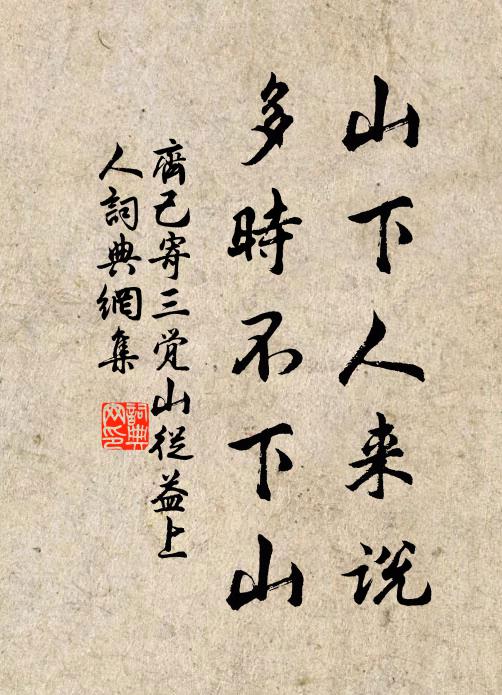 山下人来说
多時不下山
齊己寄三觉山從益上
人詞典網集
詞典网印